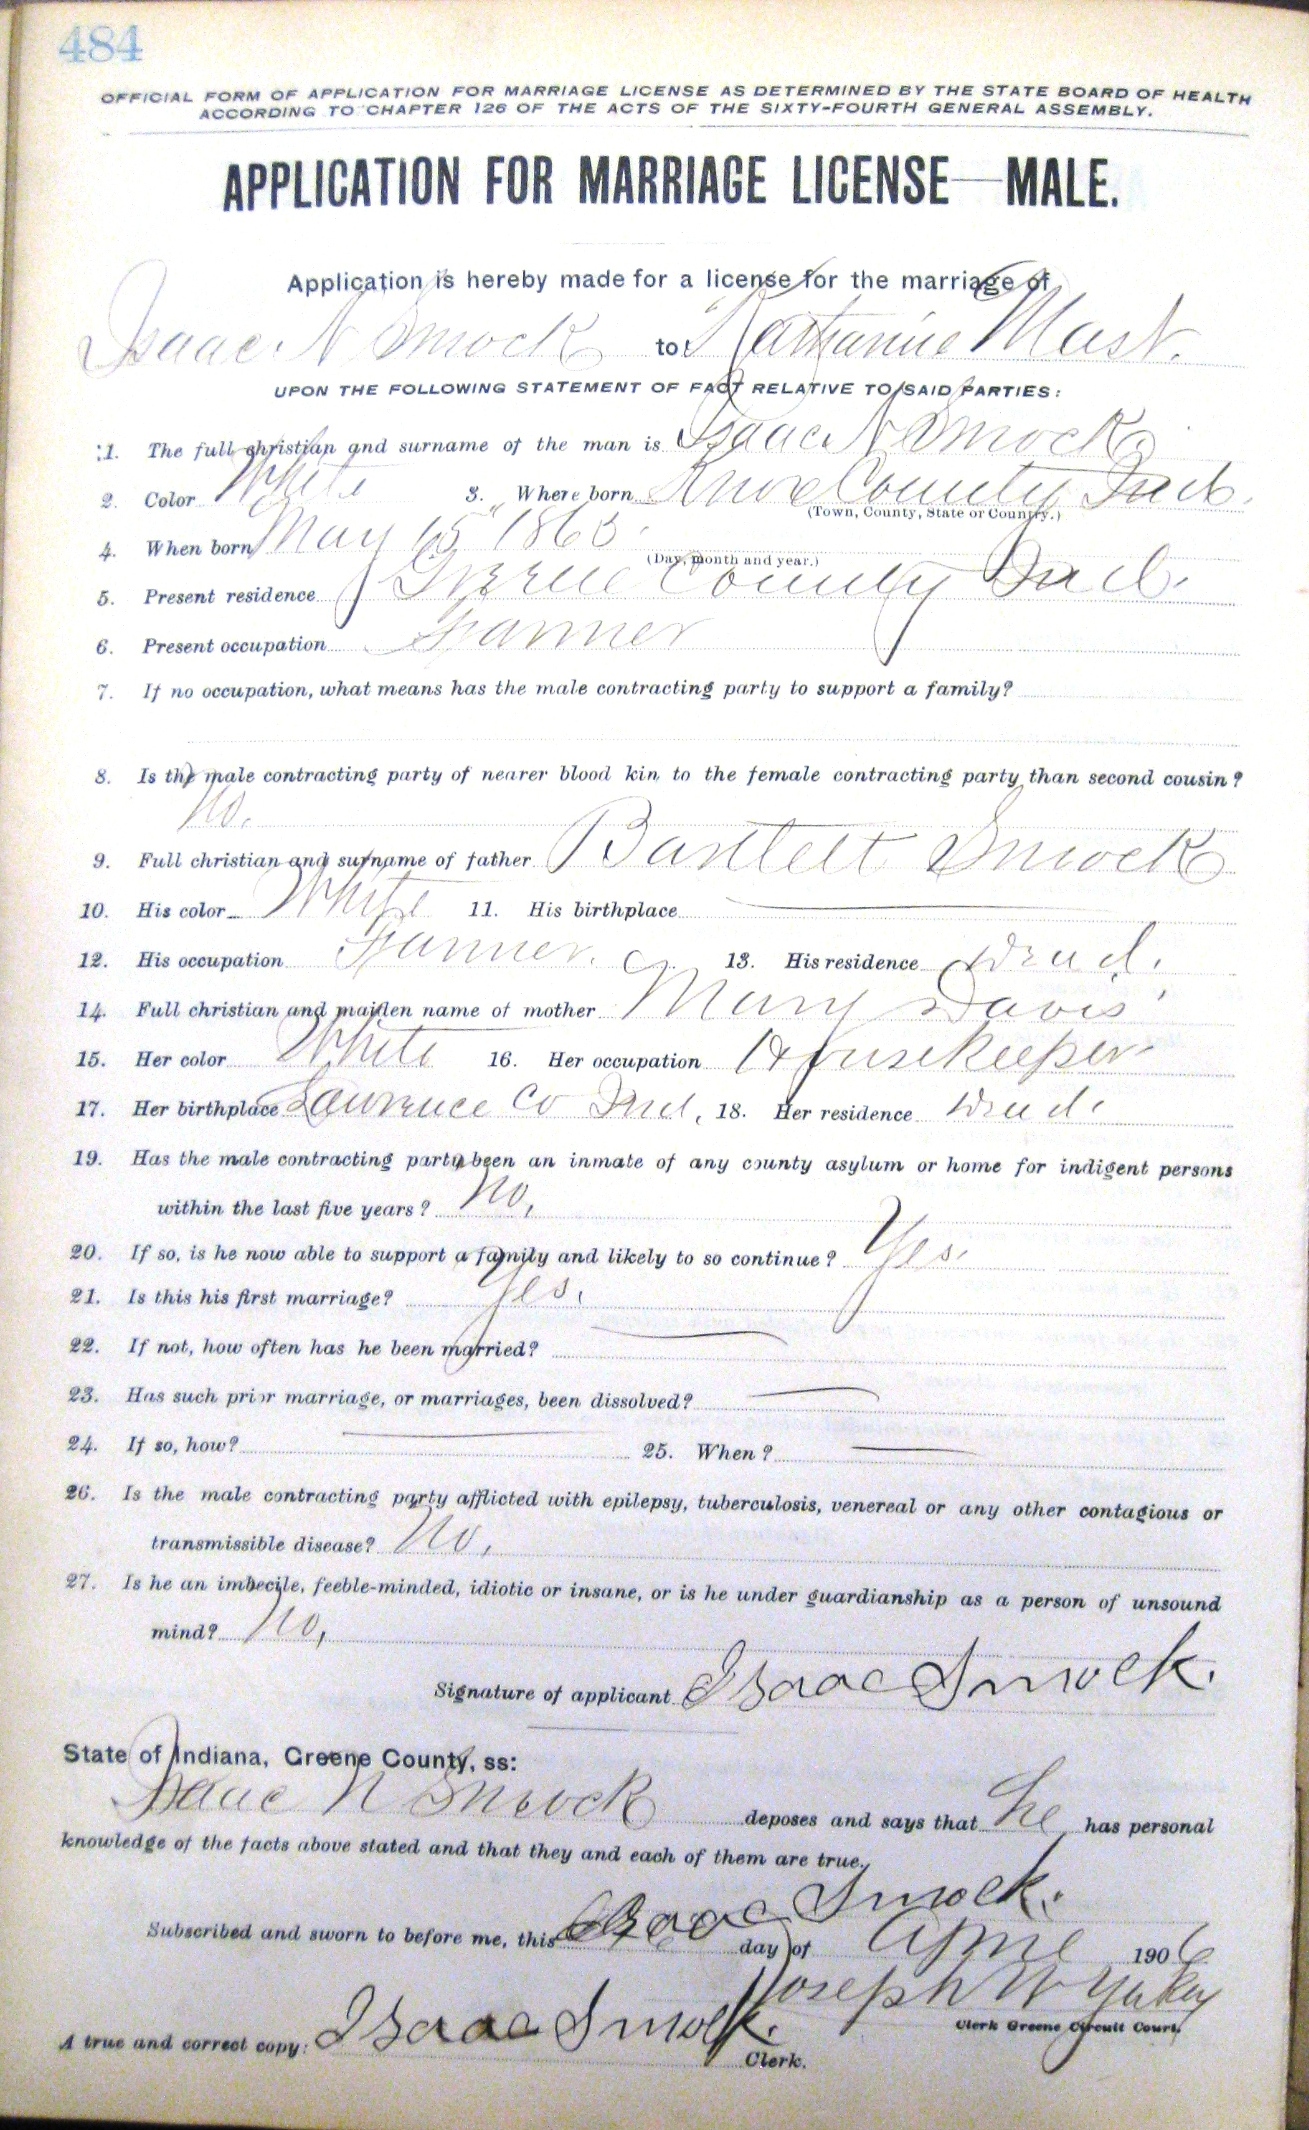 484
OFFICIAL FORM OF APPLICATION FOR MARRIAGE LICENSE AS DETERMINED BY THE STATE BOARD OF HEALTH
ACCORDING TO CHAPTER 126 OF THE ACTS OF THE SIXTY-FOURTH GENERAL ASSEMBLY.
APPLICATION FOR MARRIAGE LICENSE—MALE.
Application is hereby made for a license for the marriage of
Isaac N Smock to Katharine Mast.
UPON THE FOLLOWING STATEMENT OF FACT RELATIVE TO SAID PARTIES:
1. The full christian and surname of the man is Isaac N Smock
2. Color White 3. Where born Knox County Ind.
(Town, County, State or Country.)
4. When born May 15" 1865
(Day, month and year.)
5. Present residence Greene County Ind.
6. Present occupation Farmer
7. If no occupation, what means has the male contracting party to support a family?
8. Is the male contracting party of nearer blood kin to the female contracting party than second cousin?
No.
9. Full christian and surname of father Bartlett Smock
10. His color White 11. His birthplace
12. His occupation Farmer. 13. His residence Dead.
14. Full christian and maiden name of mother Mary Davis
15. Her color White 16. Her occupation Housekeeper
17. Her birthplace Lawrence Co Ind, 18. Her residence Dead.
19. Has the male contracting party been an inmate of any county asylum or home for indigent persons
within the last five years? No,
20. If so, is he now able to support a family and likely to so continue? Yes.
21. Is this his first marriage? Yes.
22. If not, how often has he been married?
23. Has such prior marriage, or marriages, been dissolved?
24. If so, how? 25. When?
26. Is the male contracting party afflicted with epilepsy, tuberculosis, venereal or any other contagious or
transmissible disease? No,
27. Is he an imbecile, feeble-minded, idiotic or insane, or is he under guardianship as a person of unsound
mind? No,
Signature of applicant Isaac Smock.
State of Indiana, Greene County, ss:
Isaac N Smock deposes and says that he has personal
knowledge of the facts above stated and that they and each of them are true.
Isaac Smock.
Subscribed and sworn to before me, this day of April 1906
Joseph W Yakey
Clerk Greene Circuit Court.
A true and correct copy: Isaac Smock.
Clerk.